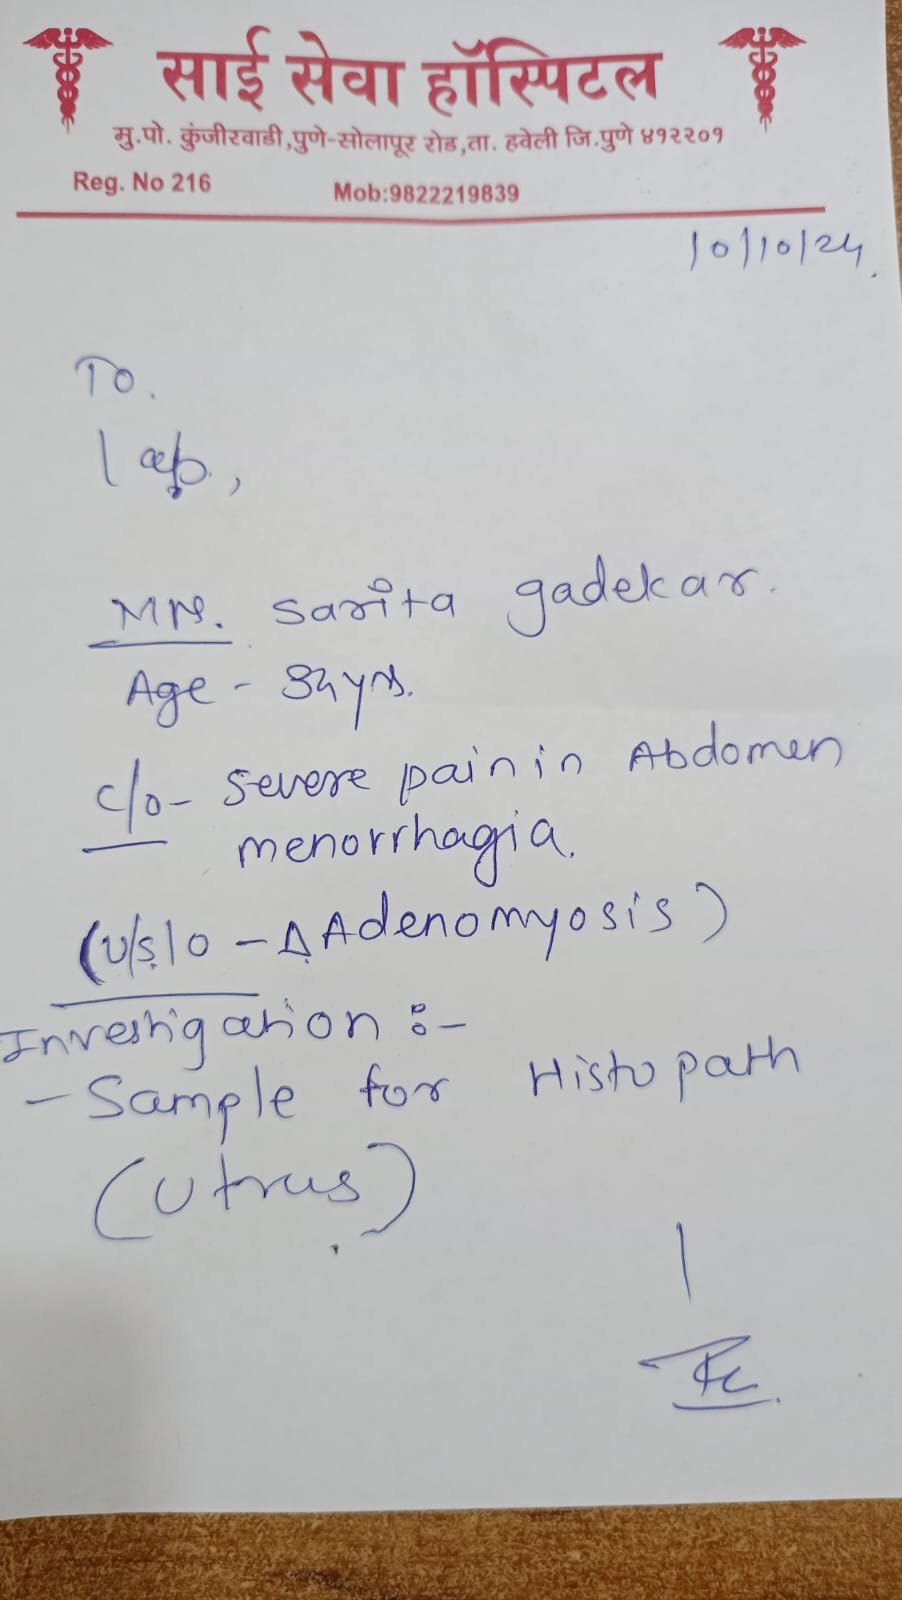 साई सेवा हॉस्पिटल
मु.पो. कुंजीरवाडी,पुणे-सोलापूर रोड,ता. हवेली जि.पुणे ४१२२०१
Reg. No 216
Mob:9822219839
10/10/24.
To.
lab,
Mrs. Sarita gadekar.
Age - 34yrs.
c/o- Severe pain in Abdomen
menorrhagia.
(U/S/O - Δ Adenomyosis)
Investigation :-
- Sample for Histopath
(Utrus)